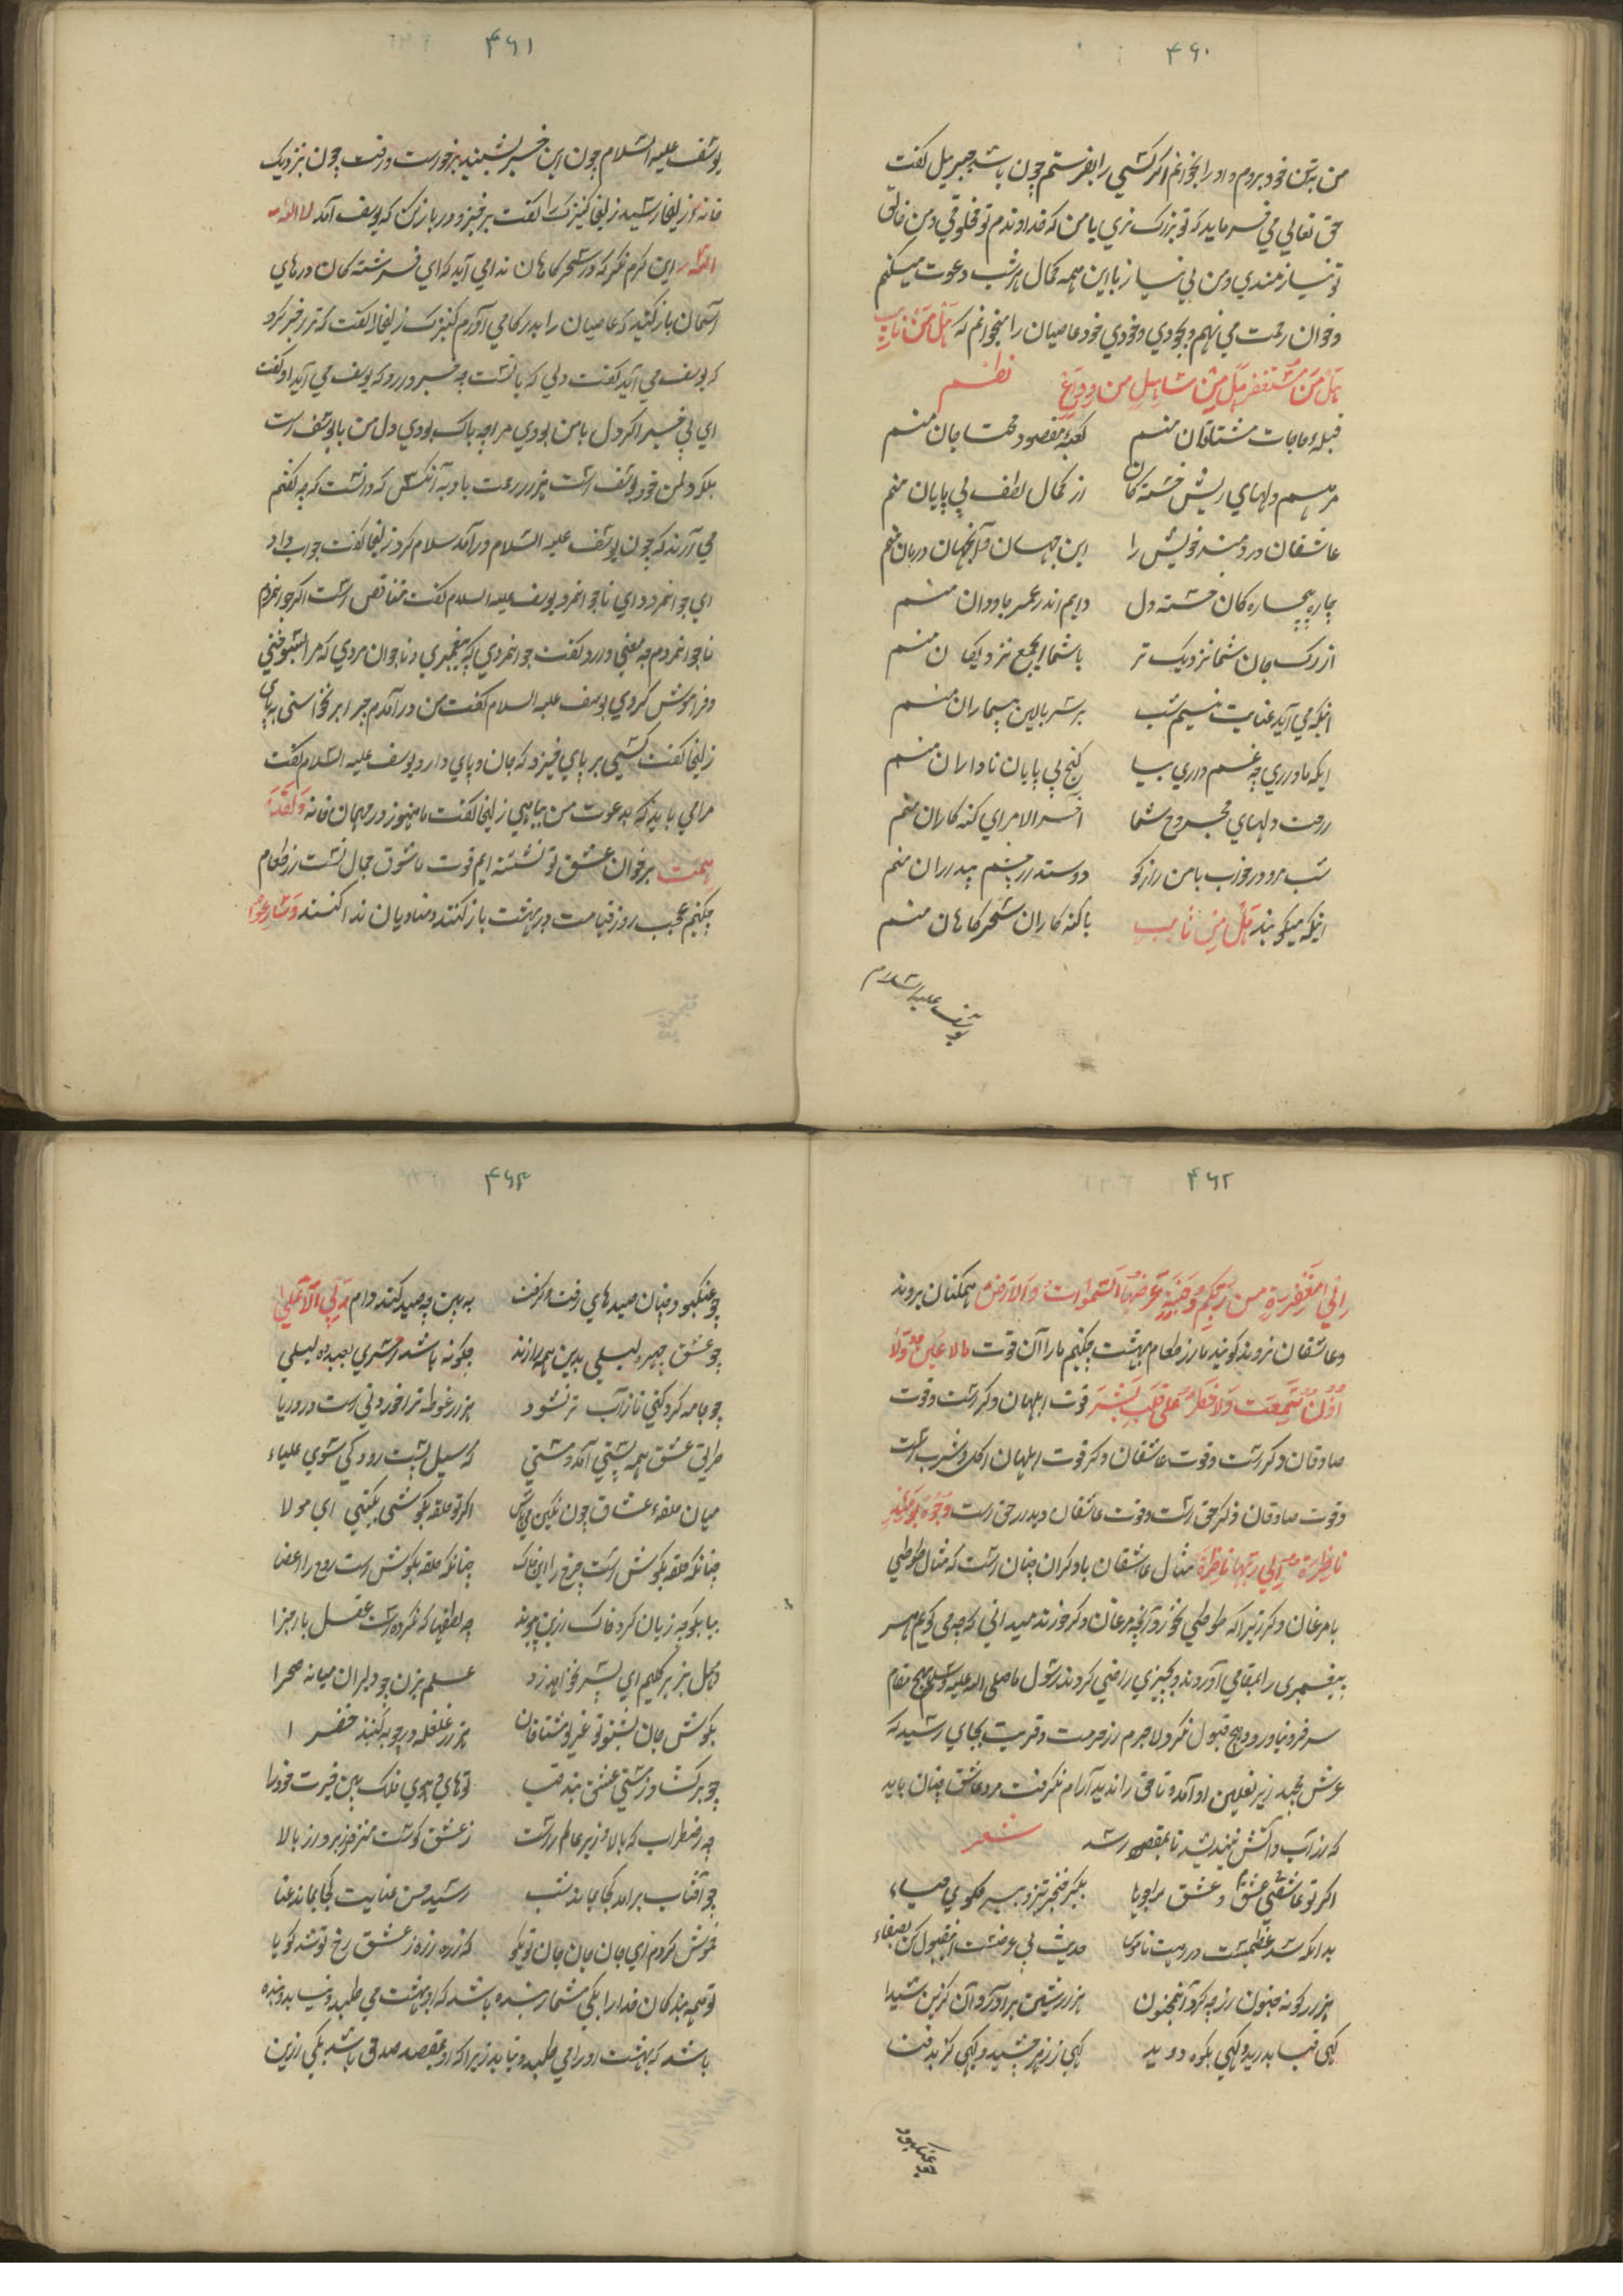 ۴۶۰
من بتن خود بروم و او را بخوانم اگر کسی را بفرستم چون باشد جبرییل گفت
حق تعالی می فرماید که تو بزرک تری یا من که خداوندم تو مخلوقی و من خالق
تو نیازمندی و من بی نیاز با این همه کمال هر شب دعوت میکنم
و خوان رحمت می نهم و بجودی خودی خود عاصیان را میخوانم که هَل مَن تایبٍ
هَل مَن مُستغفرٍ هَل مِن سایلٍ من وداعٍ نظم
قبلهٔ حاجات مشتاقان منم کعبهٔ مقصود محتاجان منم
مرهم دلهای ریش خسته کان از کمال لطف بی پایان منم
عاشقان دردمند خویش را این جهان و آنجهان درمان منم
چاره بیچاره کان خسته دل دایم اندر عمر جاودان منم
از رک جان شما نزدیک تر با شما ای جمع نزدیکان منم
آنکه می آید عنایت نیم شب بر سر بالین بیماران منم
ایکه ناداری چه غم داری بیا کنج بی پایان ناداران منم
راحت دلهای مجروح شما آخر الامر ای کنه کاران منم
شب مرو در خواب با من راز کو دوستدار چشم بیداران منم
اینکه میکویند هَل مِن تایبٍ با کنه کاران سحرکاهان منم
یوسف علیه السلام
۴۶۱
یوسف علیه السلام چون این خبر بشنید برخواست و رفت چون نزدیک
خانه زلیخا رسید زلیخا کنیزک را گفت برخیز و در باز کن که یوسف آمد لا اله الا
الله این کرم نکر که در سحرکاهان ندا می آید که ای فرشته کان درهای
آسمان باز کنید که عاصیان را بدرکاه می آورم کنیزک زلیخا را گفت که ترا خبر کرد
که یوسف می آید گفت دلی که با تست چه خبر دارد که یوسف می آید او گفت
ای بی خبر اکر دل با من بودی مرا چه باک بودی دل من با یوسف است
بلکه دل من خود یوسف است هزار رحمت باد بر آنکس که دانست که چه گفتم
می آرند که چون یوسف علیه السلام درآمد سلام کرد زلیخا گفت جواب داد
ای جوانمرد و ای ناجوانمرد یوسف علیه السلام گفت متناقض است اکر جوانمردم
ناجوانمردم چه معنی دارد گفت جوانمردی که پیغمبری و ناجوان مردی که مرا بسوختی
و فراموش کردی یوسف علیه السلام گفت من درآمدم چرا برنخاستی بپای
زلیخا گفت کسی بر پای خیزد که جان و پای دارد یوسف علیه السلام گفت
مرا می باید که بدعوت من بیایی زلیخا گفت ما هنوز در مهمان خانه وَلَقَد
هَمَّت بر خوان عشق تو نشسته ایم قوت ما شوق جمال تست از طعام
چکنم عجب روز قیامت در بهشت باز کنند و منادیان ندا کنند وَسَارِعُوا
۴۶۲
اِلَی مَغْفِرَةٍ مِن رَبِّکُم وَجَنَّةٍ عَرضُهَا السَّمواتُ وَالاَرضُ همکنان بروند
و عاشقان نروند کویند ما را از طعام بهشت چکنیم ما را آن قوت ما لا عَینٌ وَلا
اُذُنٌ سَمِعَت وَلا خَطَرَ عَلی قَلبِ بَشَر قوت ابلهان دکر است و قوت
صادقان دکر است و قوت عاشقان دکر قوت ابلهان اکل و شرب است
و قوت صادقان ذکر حق است و قوت عاشقان دیدار حق است وُجُوهٌ یَومَئِذٍ
نَاضِرَةٌ اِلی رَبِّهَا نَاظِرَة مثال عاشقان با دکران چنان است که مثال طوطی
با مرغان دکر زیرا که طوطی نخورد آنچه مرغان دکر خورند میدانی که چه می کویم هر
پیغمبری را بمقامی آوردند و بچیزی راضی کردند رسول ما صلی الله علیه وسلم بهیچ مقام
سر فرو نیاورد و هیچ قبول نکرد لاجرم از حرمت و قربت بجای رسید که
عرش مجید زیر نعلین او آمد و تا حق را ندید آرام نکرفت مرد عاشق چنان باید
که از آب و آتش نیندیشد تا بمقصود رسد شعر
اکر تو عاشقی عشق و عشق را جویا بکیر خنجر تیز و ببر کلوی حیاء
بدانکه سد عظیمست در رویت ناموس حدیث بی غرضست این قبول کن بصفاء
هزار کونه جنون از چه کرد آن مجنون هزار شیفتن برآورد آن کزین شیدا
کهی قبا بدرید و کهی بکوه دوید کهی ز زهر چشید و کهی کزید فنا
چو عنکبود
۴۶۳
چو عنکبوت چنان صیدهای زفت کرفت به بین چه صید کند دام رَبّی الاَعلی
چو عشق چهرهٔ لیلی بدین همه ارزند چکونه باشد اسری بعبده لیلی
چو جامه کرد کنی تا ز آب تر نشود هزار غوطه ترا خوردنی است در دریا
طریق عشق همه پستی آمد و مستی که سیل پست رود کی شوی علیاء
میان حلقهٔ عشاق چون نکین می باش اکر تو حلقه بکوشی بکتهی ای مولا
چنانکه حلقه بکوش است چرخ را این خاک چنانکه حلقه بکوش است روح را اعضا
بیا بکو چه زیان کرد خاک ازین پیوند چه لطفها که نکرده است عقل با اجزا
دهل بزیر کلیم ای پسر نخواهد زد علم بزن چو دلیران میانه صحرا
بکوش جان بشنو تو غریو مشتاقان هزار غلغله در چو به کنبد خضرا
چو برکشاد ز مستی عشق بند قبا توهای هوی ملک بین حیرت خود را
چه اضطراب که بالا و زیر عالم راست ز عشق کوست منزه ز برو از بالا
چو آفتاب برامد کجا بماند شب رسید حسن عنایت کجا بماند عنا
خموش کردم ای جان جان جان تو بکو که ذره ذره ز عشق رخ تو شد کویا
تو همه بندکان خدا را بکی شمار بنده باشد که او بهشت می طلبد و نیابد و بنده
باشد که بهشت او را می طلبد و نیابد زیرا که او بمقصد صدق باشد یکی ازین